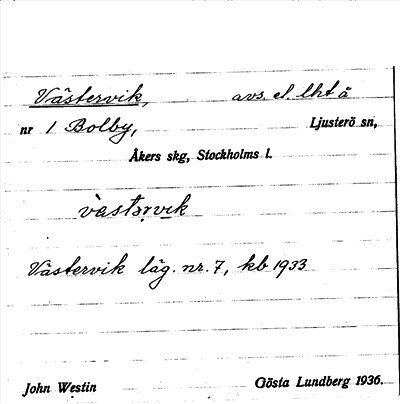 Västervik, avs. el. lht å
nr 1 Bolby, Ljusterö sn,
Åkers skg, Stockholms l.
västərvik
Västervik läg. nr. 7, kb 1933
John Westin Gösta Lundberg 1936.